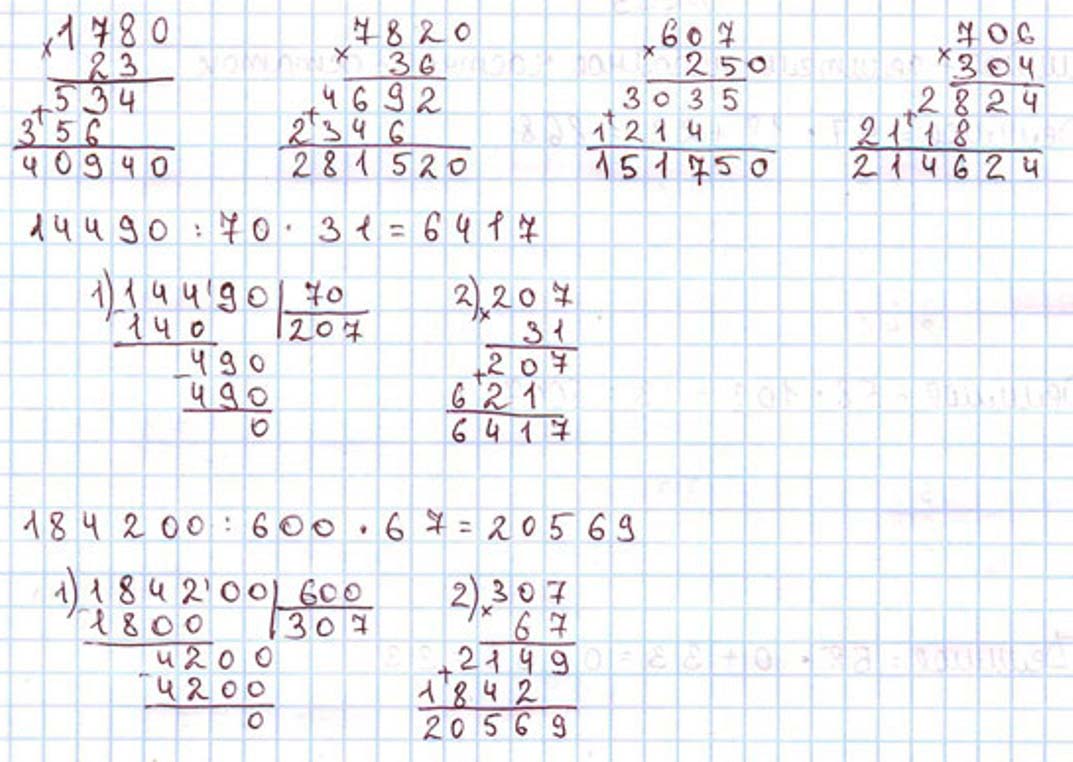 ×1780 ×7820 ×607 ×706
23 36 250 304
+534 +4692 +3035 +2824
356 2346 1214 2118
40940 281520 151750 214624
14490 : 70 · 31 = 6417
1) 144'90 | 70 2) ×207
-140 207 31
-490 +207
490 621
0 6417
184200 : 600 · 67 = 20569
1) 1842'00 | 600 2) ×307
-1800 307 67
-4200 +2149
4200 1842
0 20569